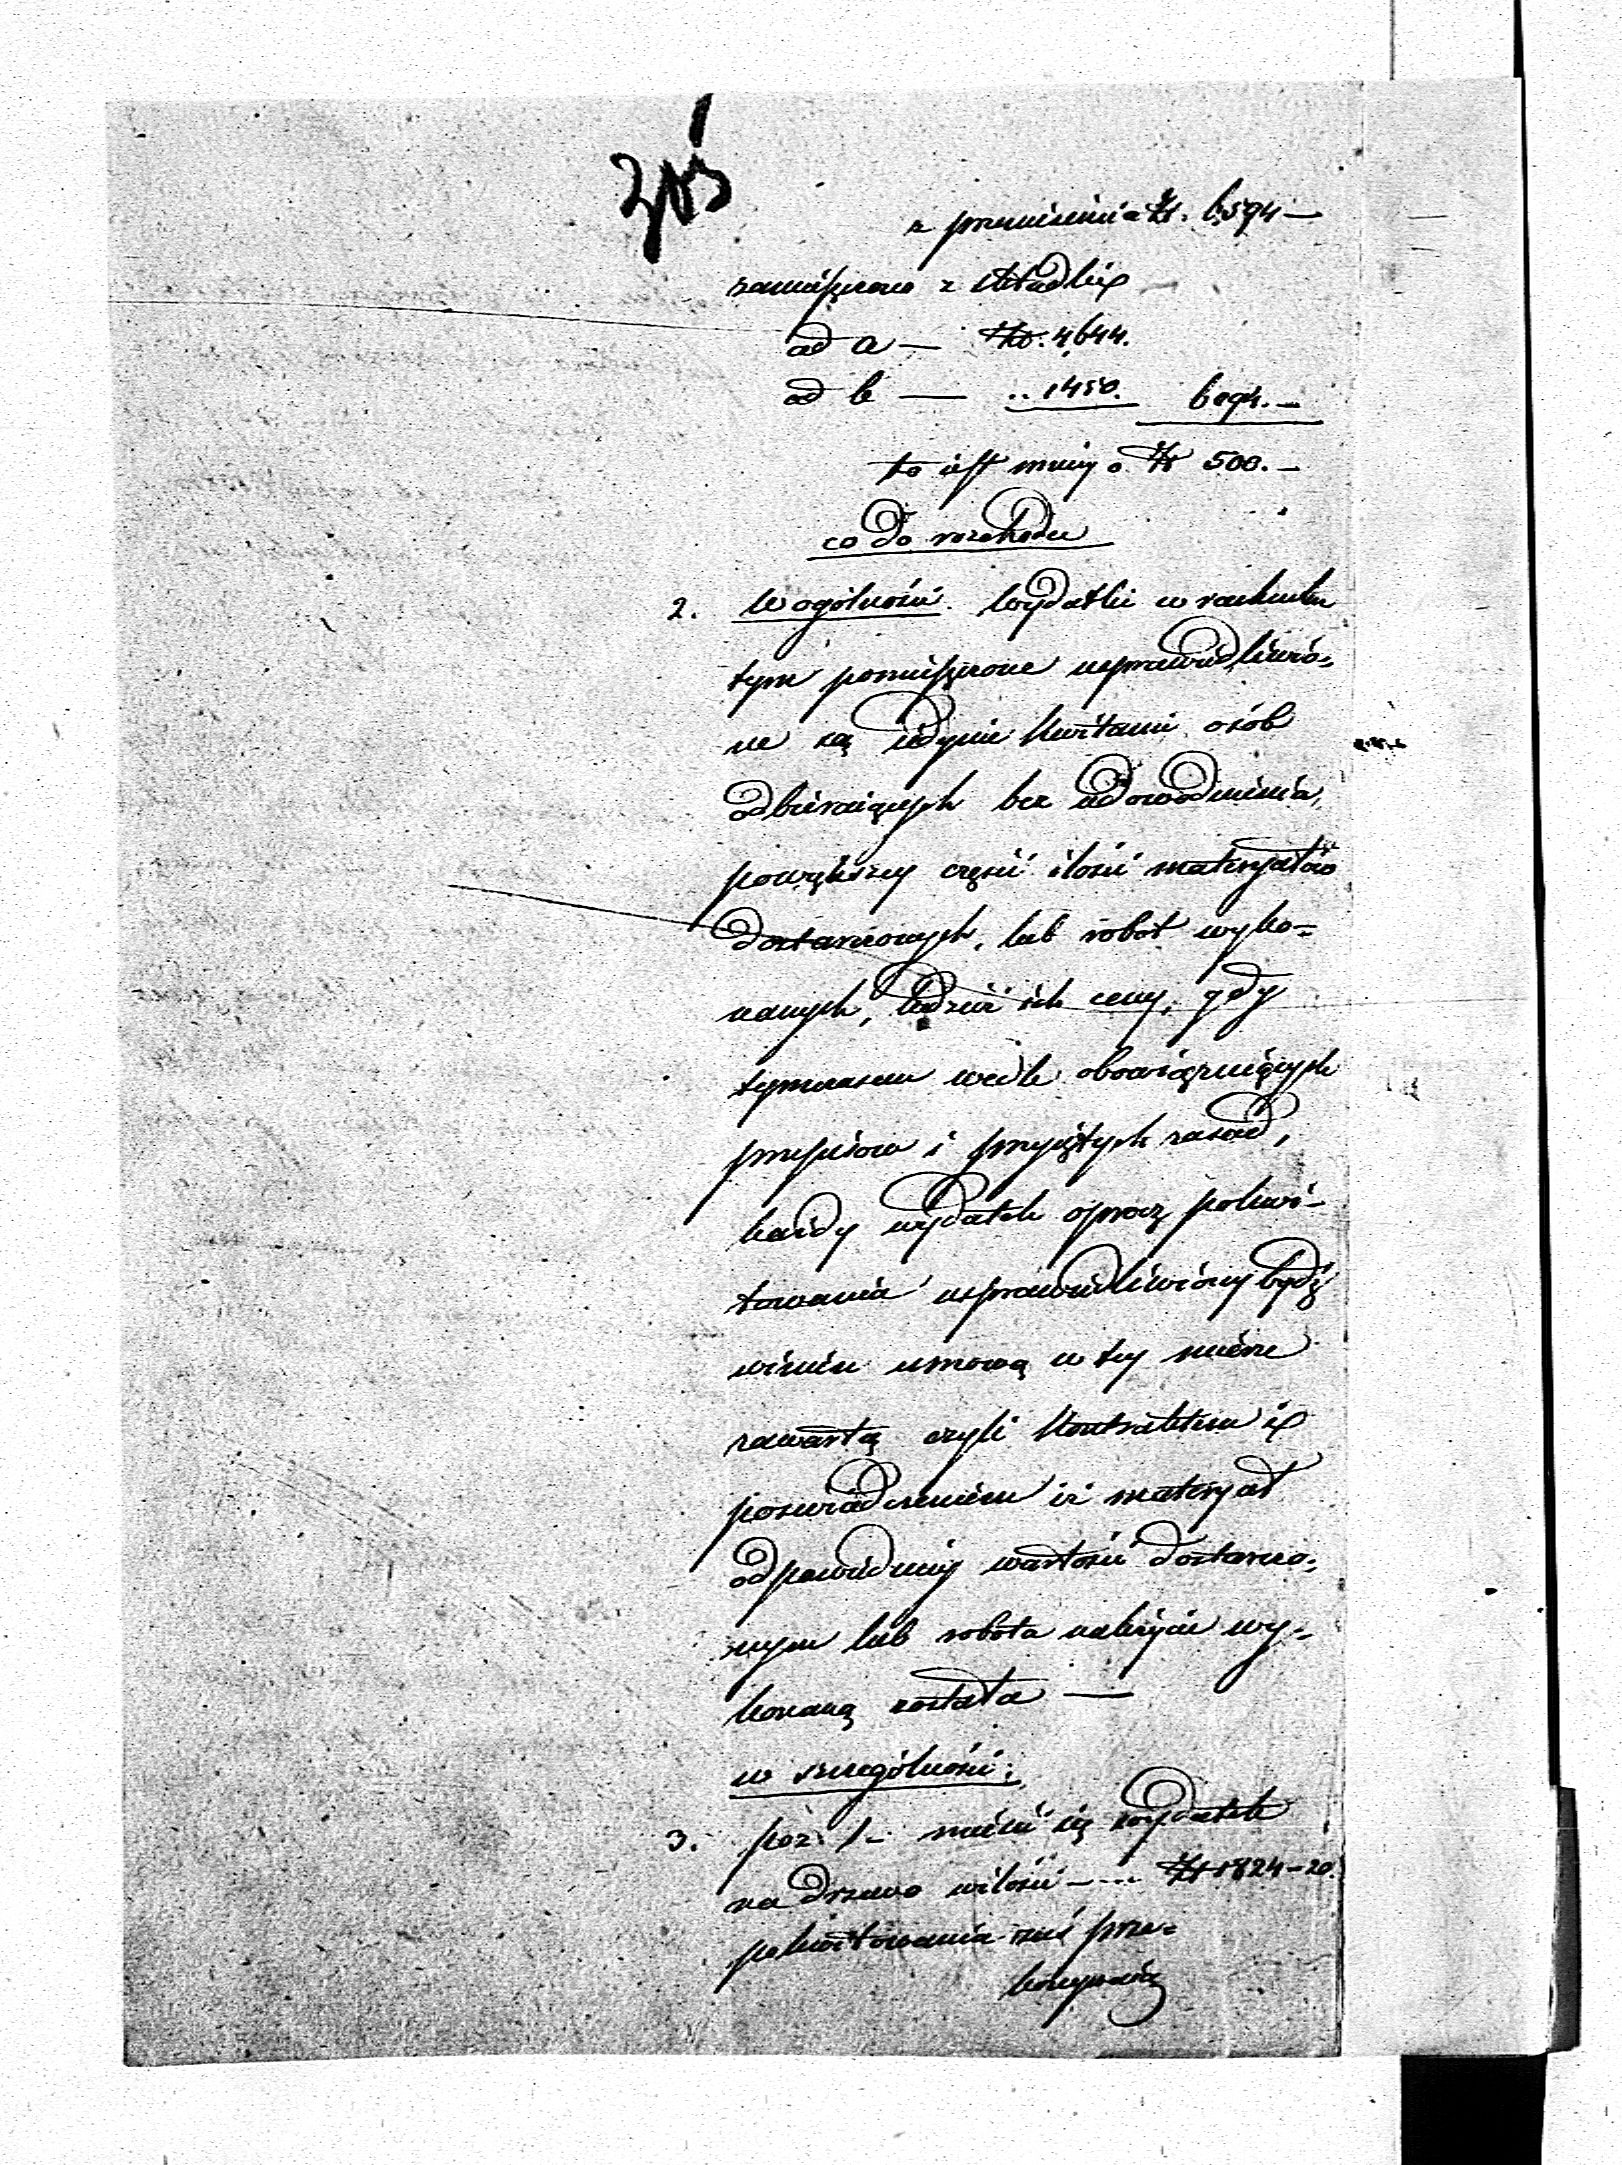 z przeniesienia Zł. 6,594 —
zamieszczono z składki
ad a — Złt. 4,644.
ad b — .. 1450. 6094. —
to iest mniey o Zł 500. —
co do rozchodu
2. W ogólności. Wydatki w rachunku
tym pomieszczone usprawiedliwio-
ne są iedynie kwitami osób
odbieraiących bez udowodnienia,
powiększey części ilości materyałów
dostarczonych, lub robot wyko-
nanych, tudzież ich ceny, gdy
tymczasem wedle obowiązuiących
przepisów i przyiętych zasad,
każdy wydatek oprocz pokwi-
towania usprawiedliwiony bydź
winien umową w tey mierze
zawartą czyli kontraktem i
poswiadczeniem iż materyał
odpowiedniey wartości dostarczo-
nym lub robota należycie wy-
konaną została —
w szczególności:
3. poz: 1 — mieści się wydatek
na drzewo w ilości — ... Zł 1824 — 20.
pokwitowania zaś prze-
konywaią